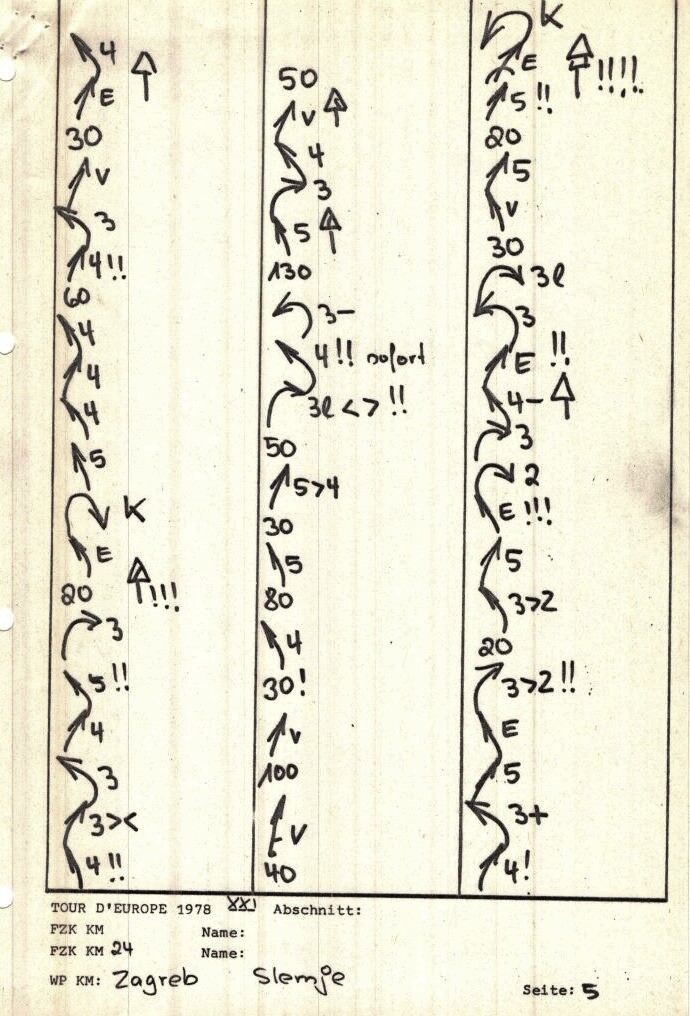 4
E
30
V
3
4!!
60
4
4
4
5
K
E
20 !!!
3
5!!
4
3
3><
4!!
50
V
4
3
5
130
3-
4!! sofort
3l <> !!
50
5>4
30
5
80
4
30!
V
100
V
40
K
E !!!!
5!!
20
5
V
30
3l
3
E !!
4-
3
2
E !!!
5
3>2
20
3>2 !!
E
5
3+
4!
TOUR D'EUROPE 1978 XXI Abschnitt:
FZK KM Name:
FZK KM 24 Name:
WP KM: Zagreb Slemje
Seite: 5